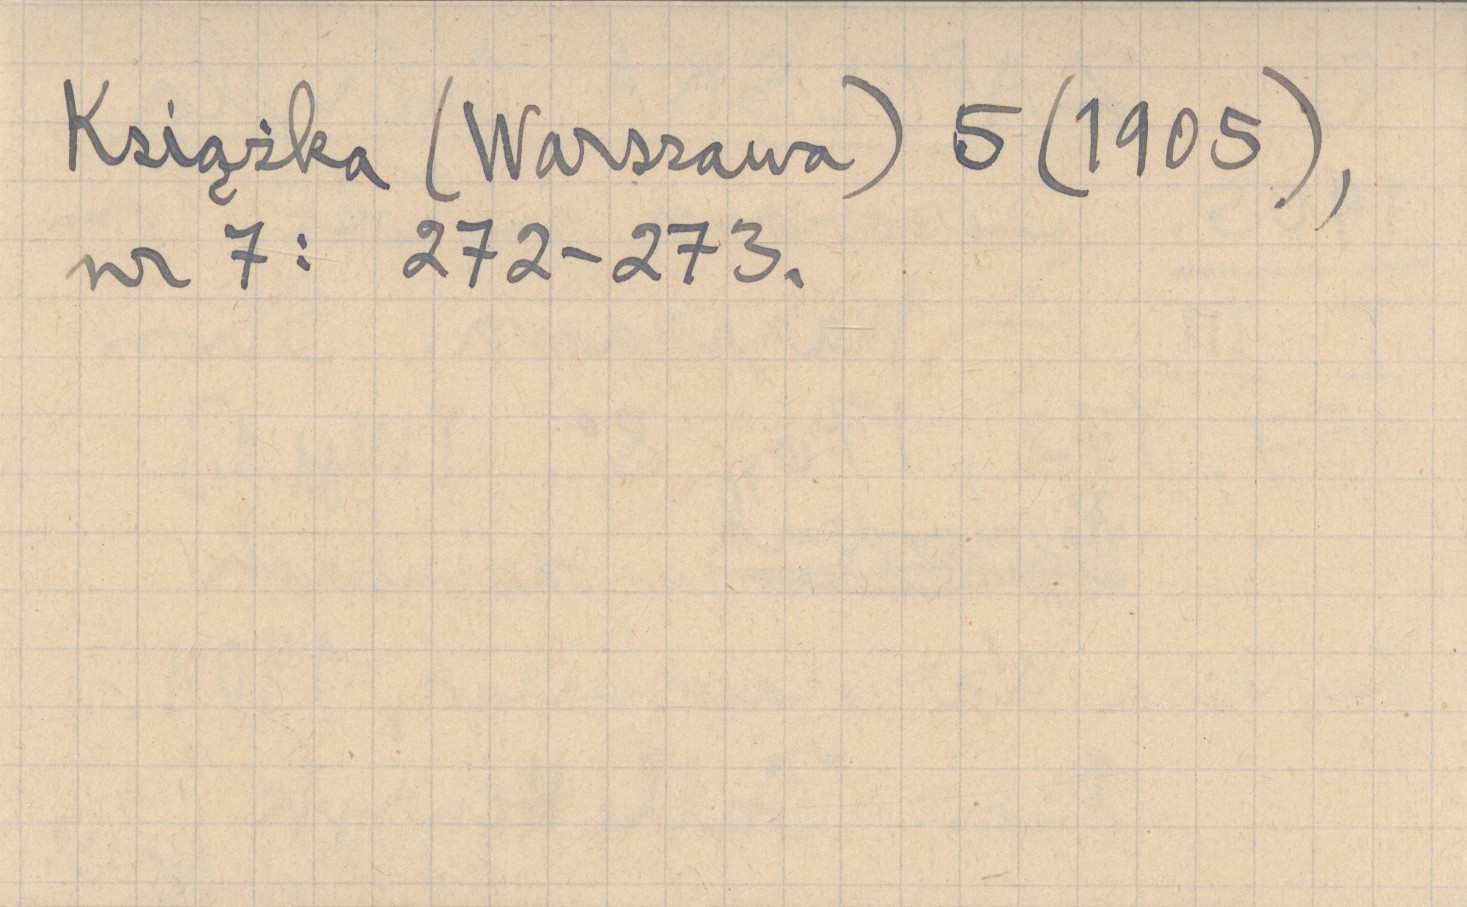 Książka (Warszawa) 5 (1905),
nr 7: 272-273.